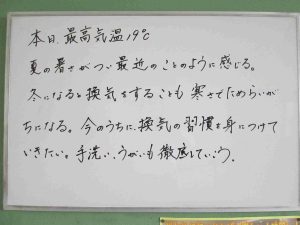 本日、最高気温19℃
夏の暑さがつい最近のことのように感じる。
冬になると換気をすることも寒さでためらいが
ちになる。今のうちに、換気の習慣を身につけて
いきたい。手洗い、うがいも徹底していこう。